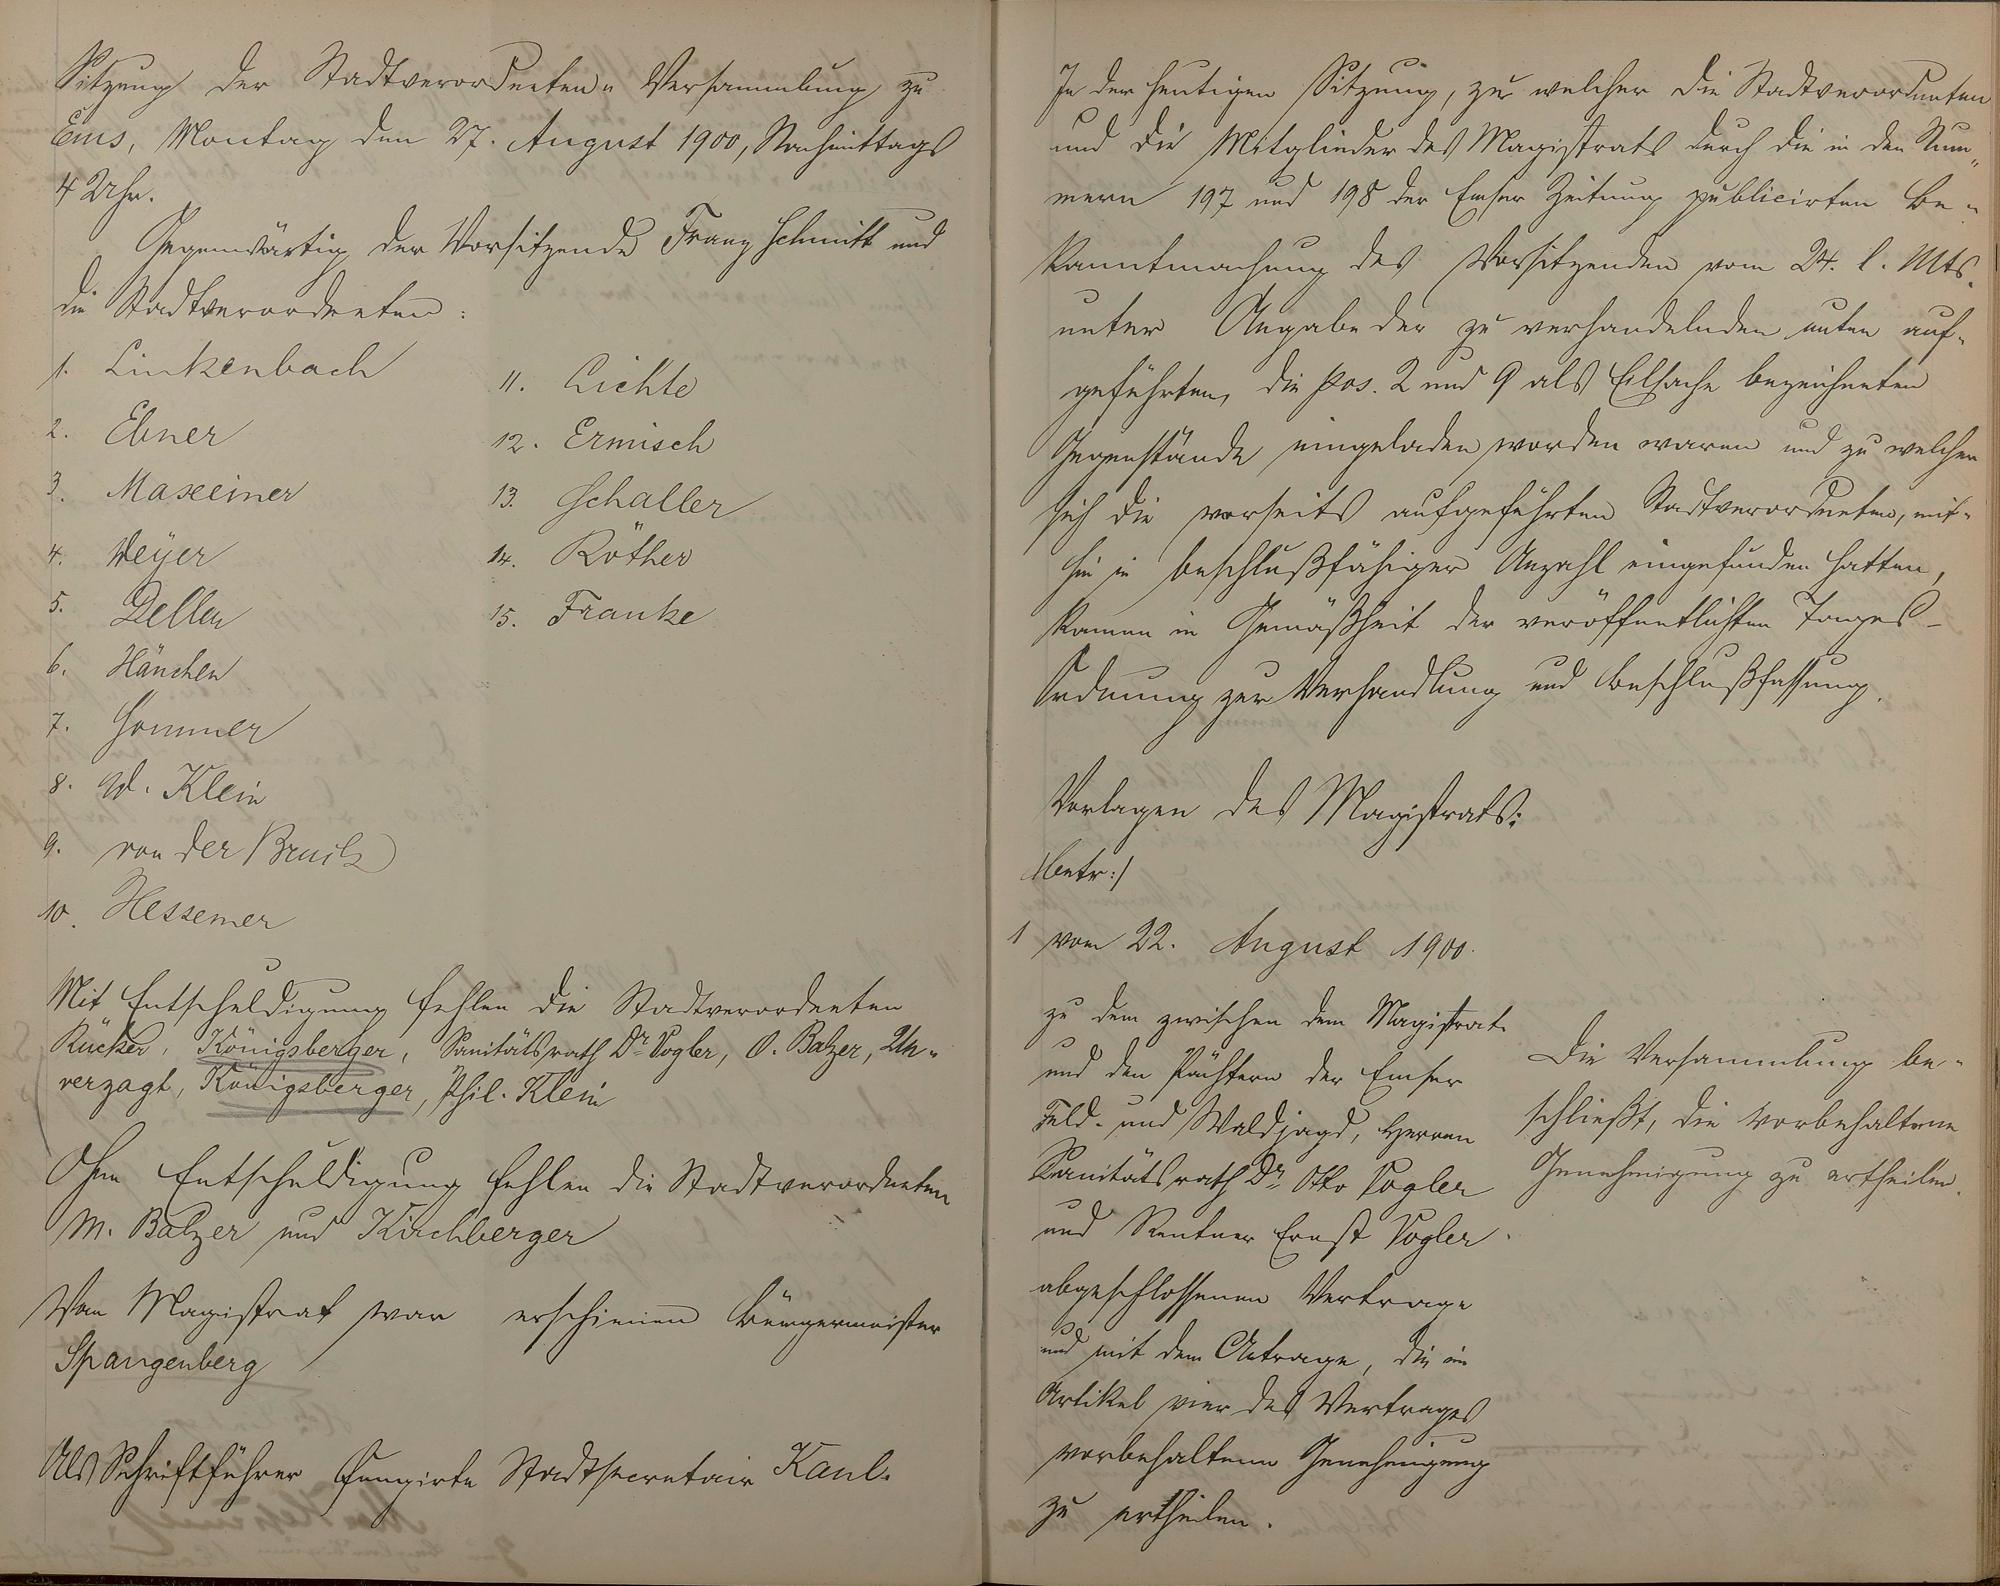 Sitzung der Stadtverordneten-Versammlung zu
Ems, Montag den 27. August 1900, Nachmittags
4 Uhr.
Gegenwärtig der Vorsitzende Franz Schmitt und
die Stadtverordneten:
1. Linkenbach
2. Ebner
3. Maxeiner
4. Weyer
5. Deller
6. Hänchen
7. Sommer
8. Ad. Klein
9. von der Bruck
10. Hessemer
11. Lichte
12. Ermisch
13. Schaller
14. Röther
15. Franke
Mit Entschuldigung fehlen die Stadtverordneten
Rücker, Königsberger, Sanitätsrath Dr. Vogler, O. Balzer, Un-
verzagt, Königsberger, Phil. Klein
Ohne Entschuldigung fehlen die Stadtverordneten
M. Balzer und Kirchberger
Vom Magistrat war erschienen Bürgermeister
Spangenberg
Als Schriftführer fungirte Stadtsecretair Kaul.
In der heutigen Sitzung, zu welcher die Stadtverordneten
und die Mitglieder des Magistrats durch die in den Num-
mern 197 und 198 der Emser Zeitung publicirten Be-
kanntmachung des Vorsitzenden vom 24. l. Mts.
unter Angabe der zu verhandelnden unten auf-
geführten, die pos. 2 und 9 als Eilsache bezeichneten
Gegenstände eingeladen worden waren und zu welcher
sich die vorseits aufgeführten Stadtverordneten, mit-
hin in beschlußfähiger Anzahl eingefunden hatten,
kamen in Gemäßheit der veröffentlichten Tages-
Ordnung zur Verhandlung und Beschlußfassung.
Vorlagen des Magistrats:
/betr:/
1 vom 22. August 1900.
zu dem zwischen dem Magistrat
und den Pächtern der Emser
Feld- und Waldjagd, Herren
Sanitätsrath Dr. Otto Vogler
und Rentner Ernst Vogler
abgeschlossenen Vertrage
und mit dem Antrage, die im
Artikel vier des Vertrages
vorbehaltene Genehmigung
zu ertheilen.
Die Versammlung be-
schließt, die vorbehaltene
Genehmigung zu ertheilen.